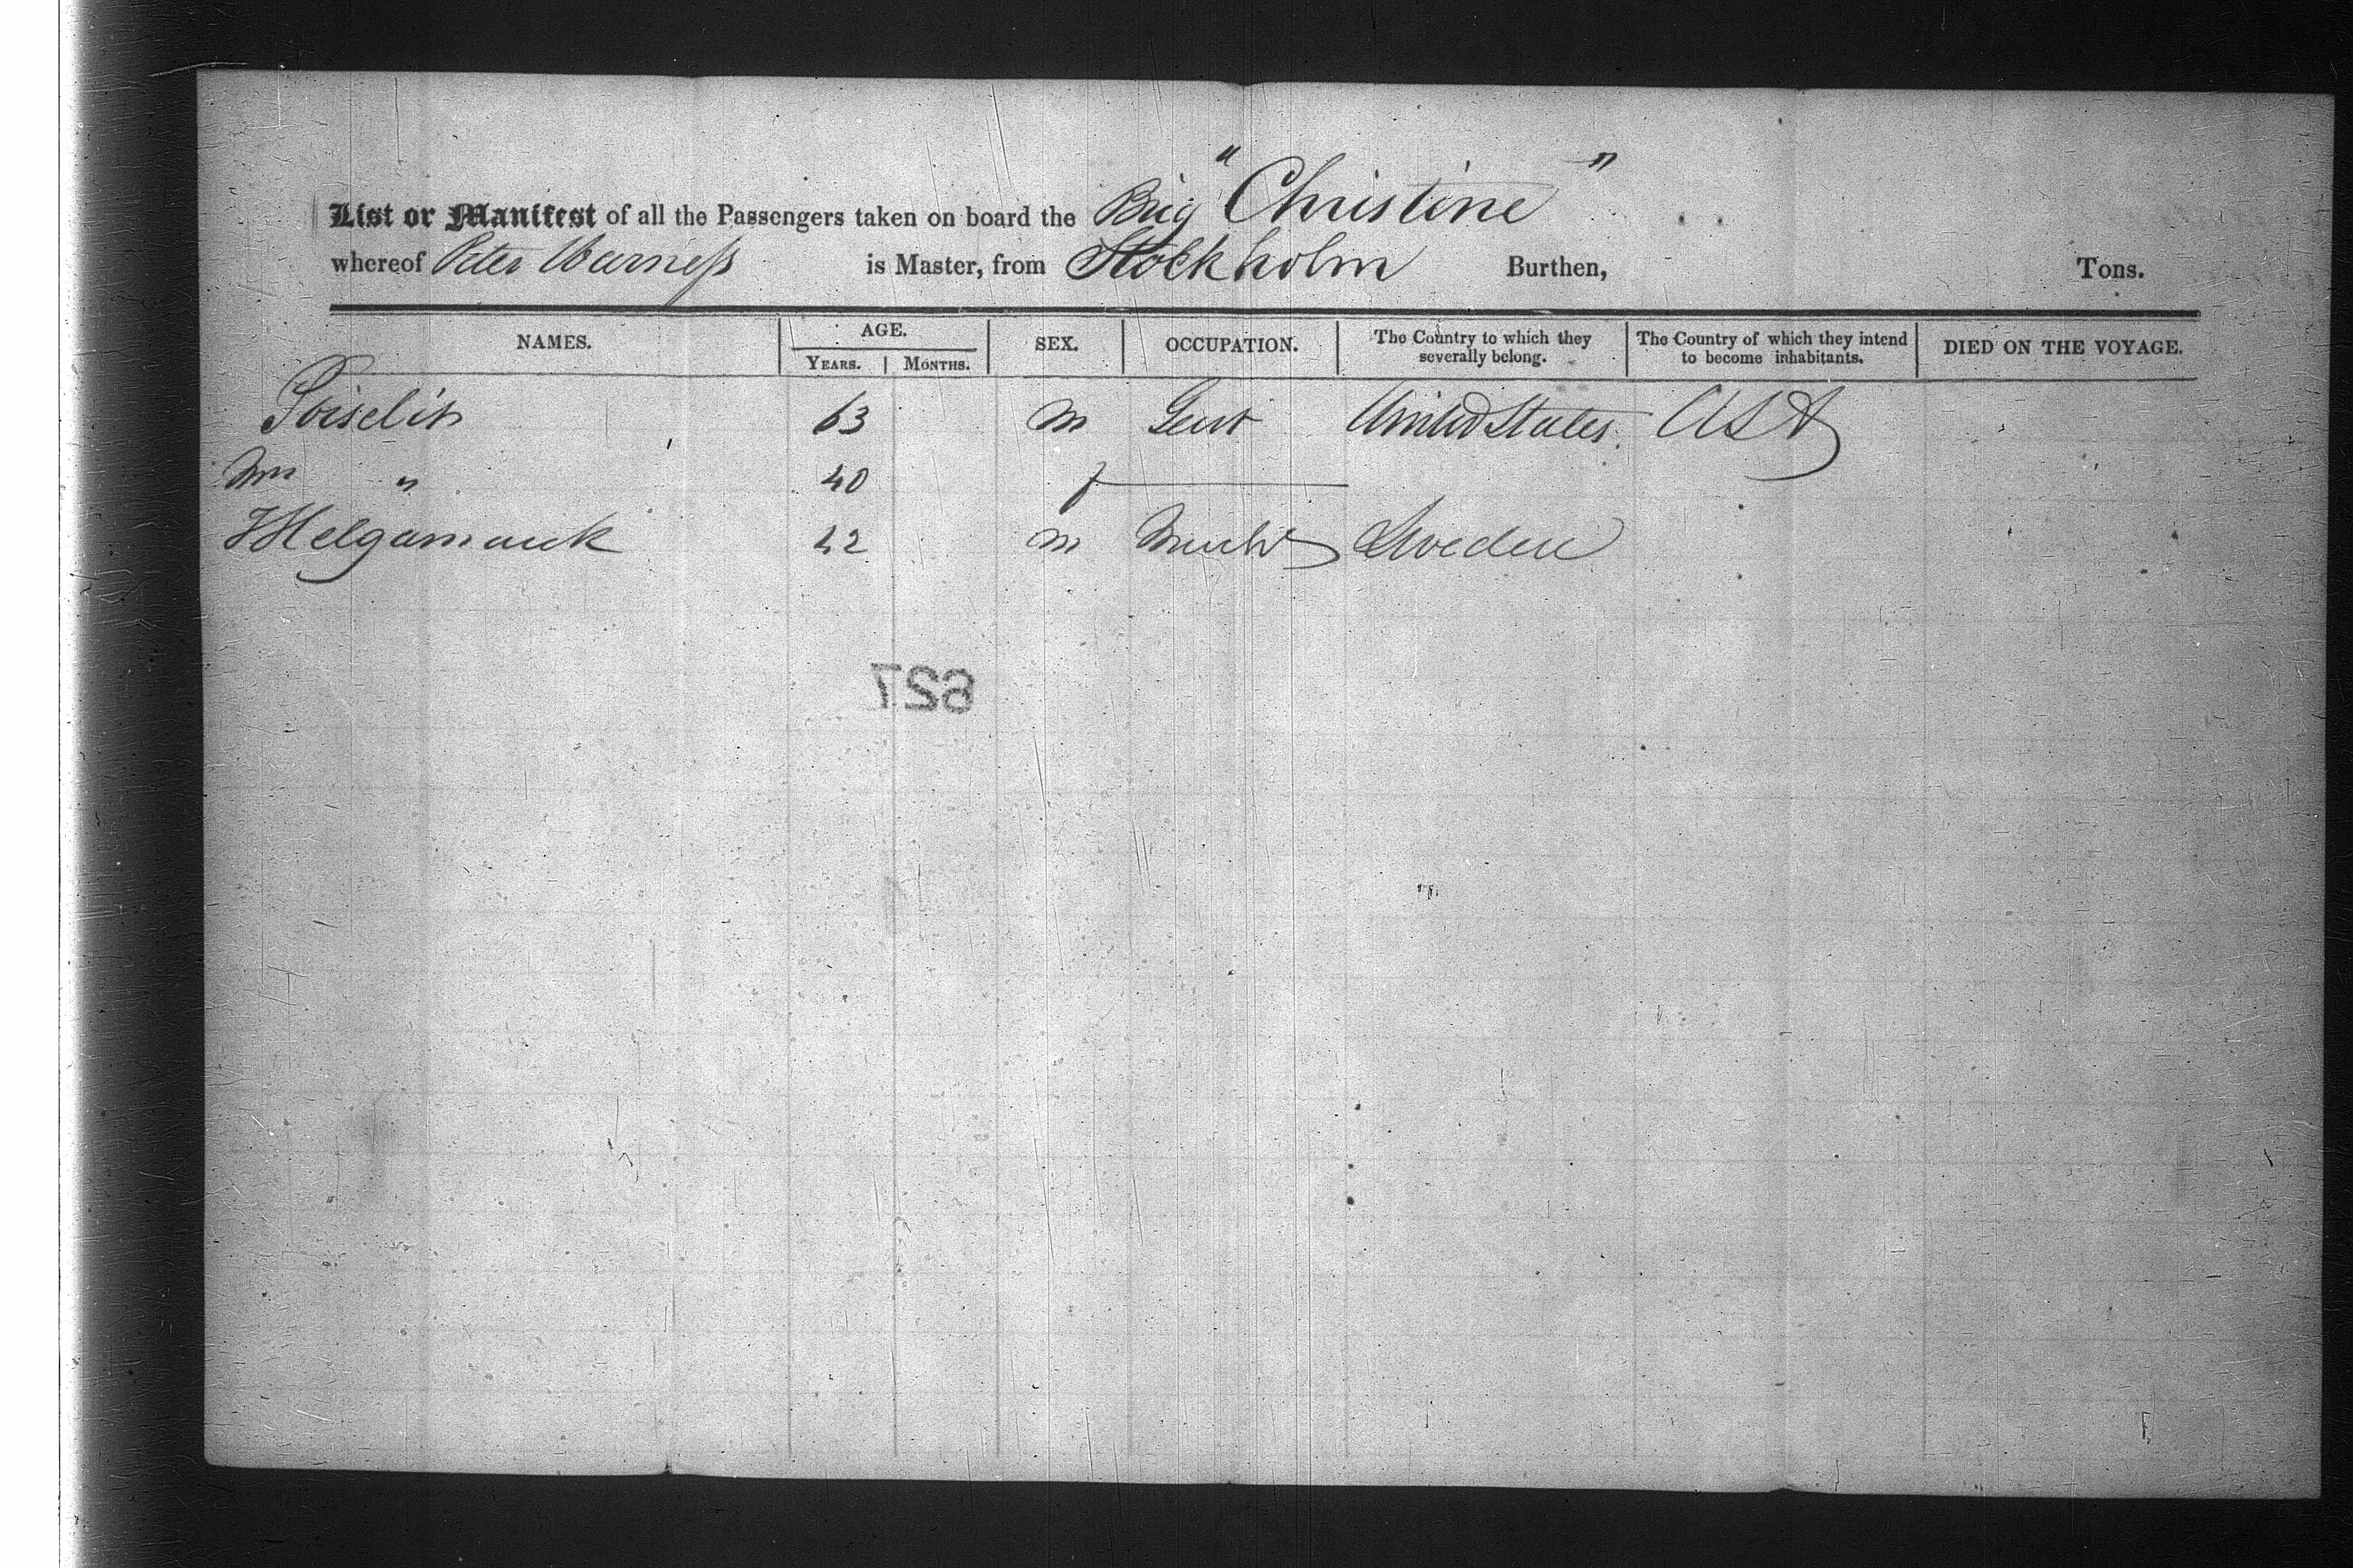 List or Manifest of all the Passengers taken on board the Brig "Christine"
whereof Peter Warness is Master, from Stockholm Burthen, Tons.
NAMES. AGE. SEX. OCCUPATION. The Country to which they severally belong. The Country of which they intend to become inhabitants. DIED ON THE VOYAGE.
YEARS. MONTHS.
63 m Gent United States. USA
Mrs " 40 f
42 m Sweden
627